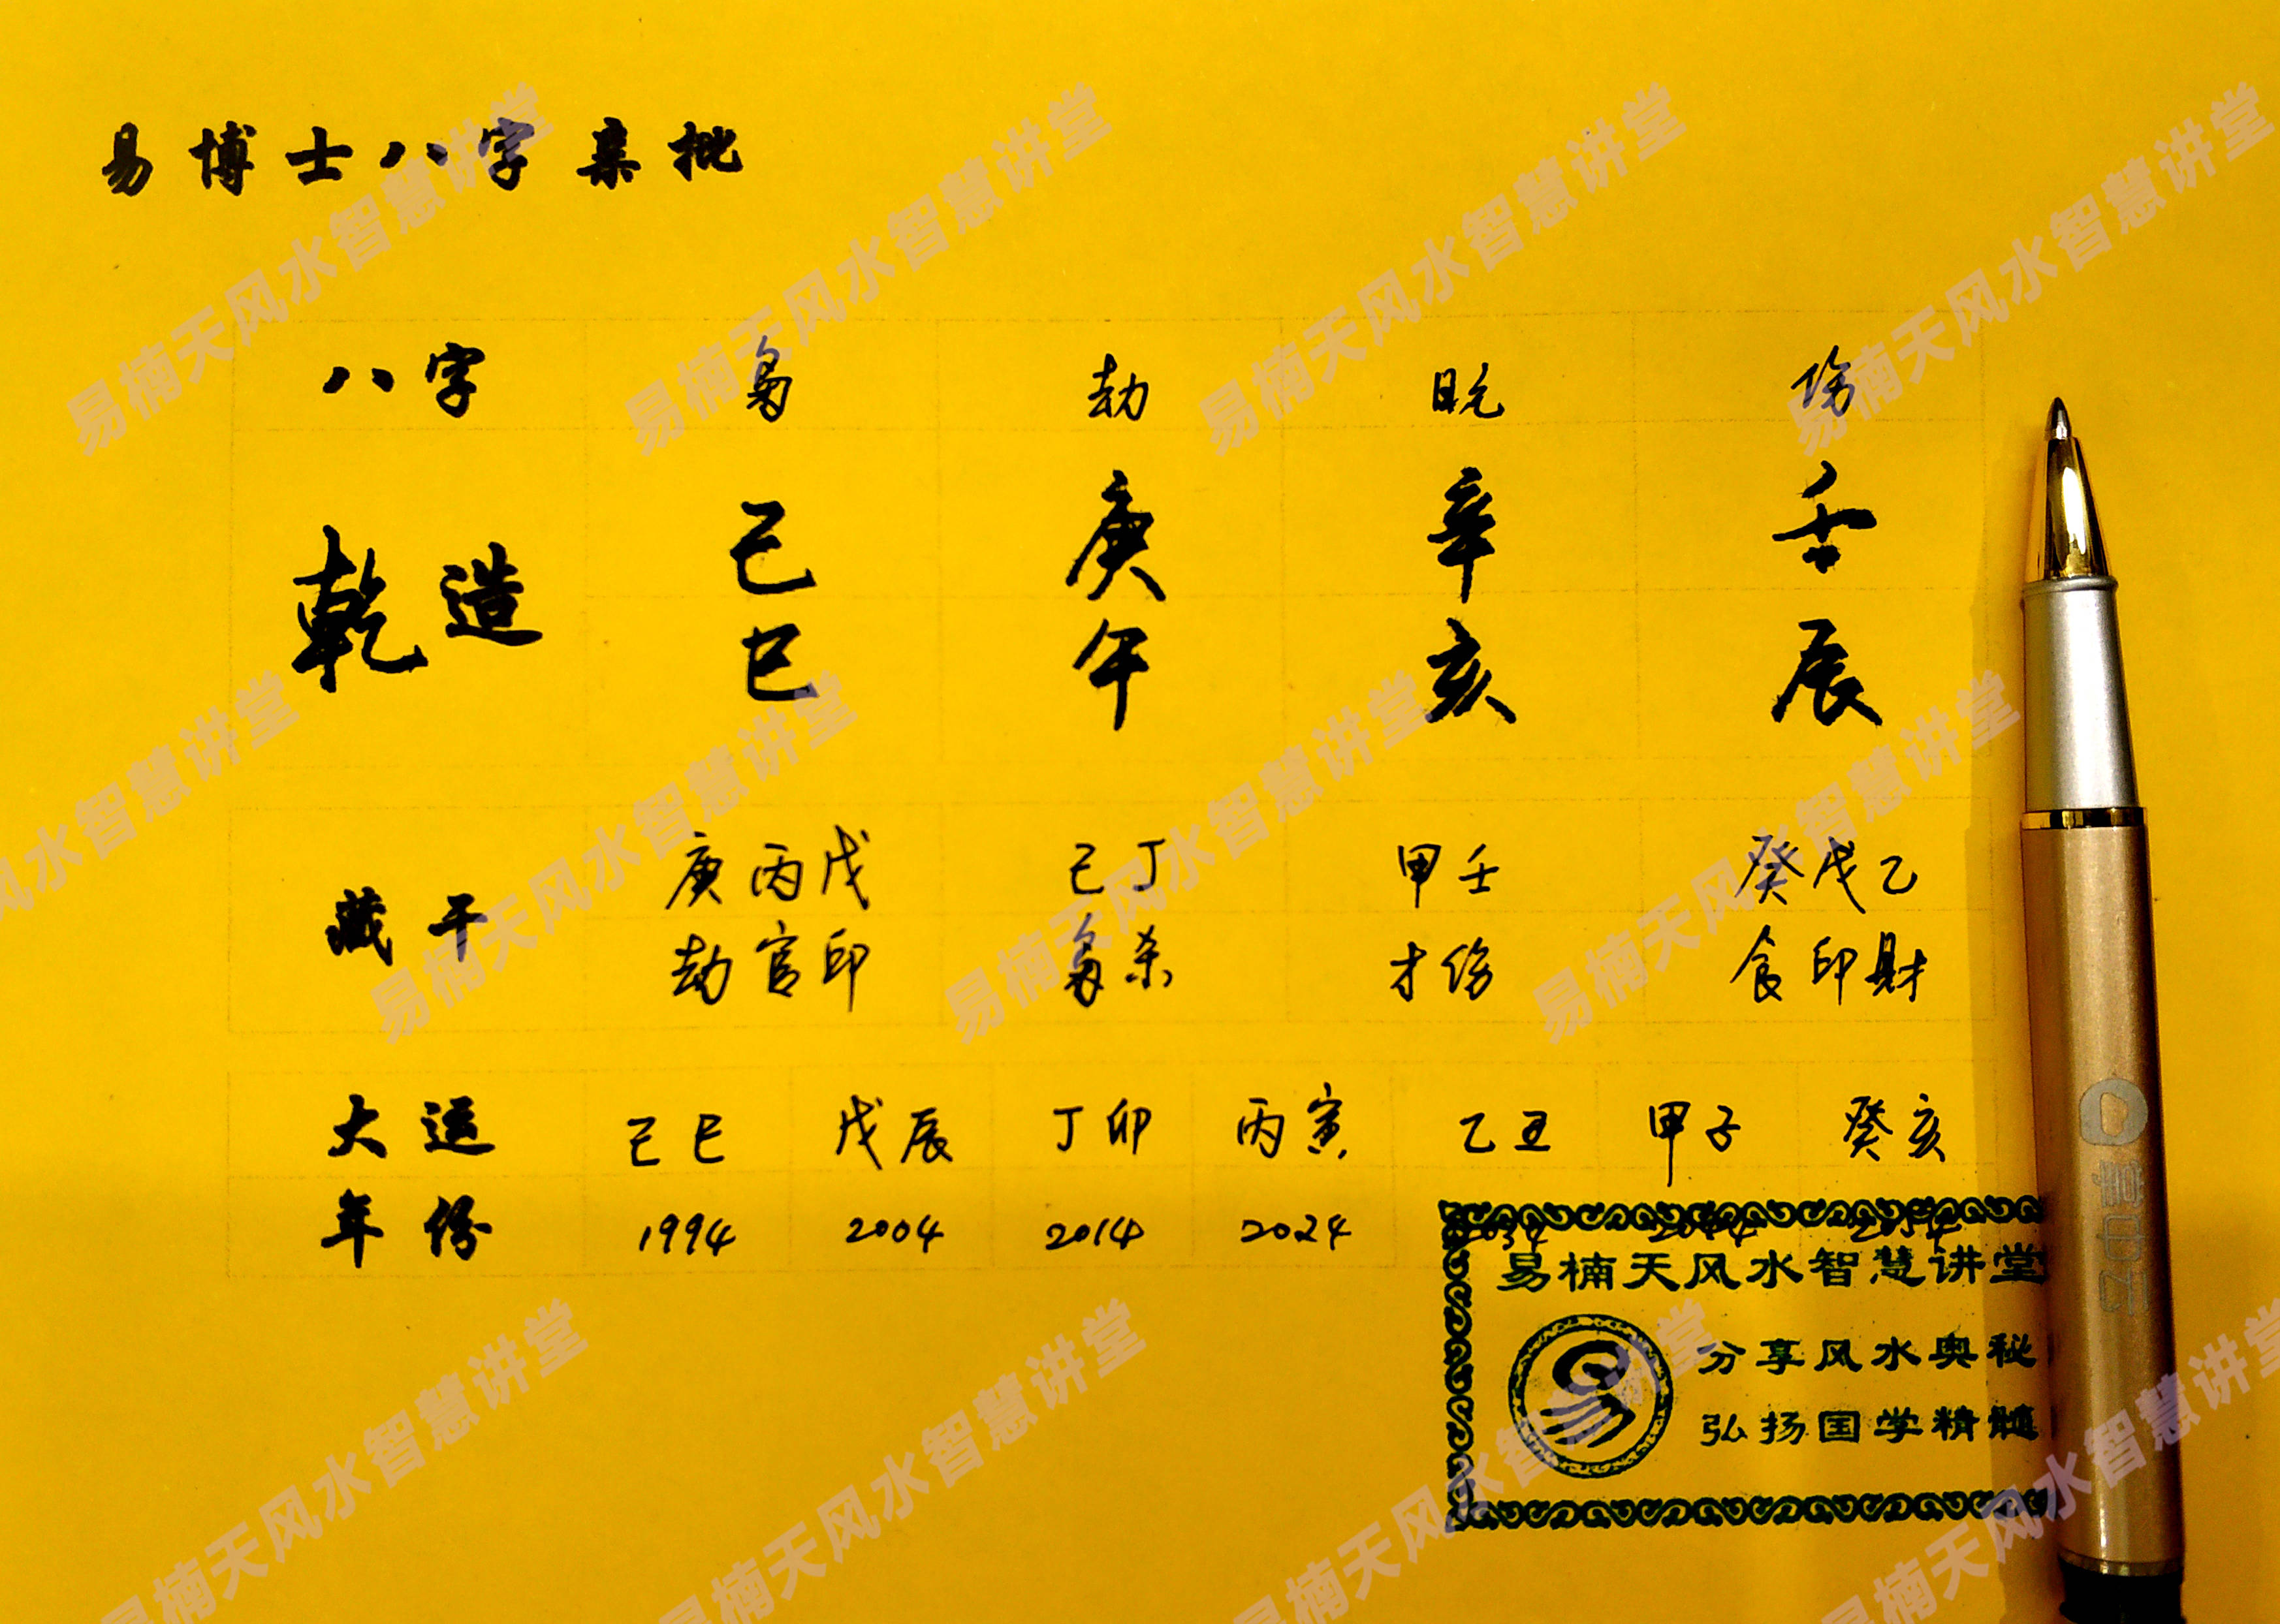 易博士八字亲批
八字 枭 劫 日元 伤
乾造 己 庚 辛 壬
巳 午 亥 辰
藏干 庚丙戊 己丁 甲壬 癸戊乙
劫官印 枭杀 才伤 食印财
大运 己巳 戊辰 丁卯 丙寅 乙丑 甲子 癸亥
年份 1994 2004 2014 2024 2034 2044 2054
易楠天风水智慧讲堂
分享风水奥秘
弘扬国学精髓
易楠天风水智慧讲堂